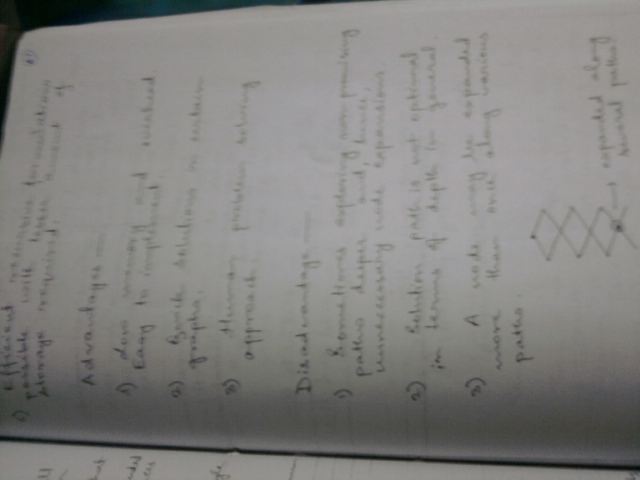 Efficient recursive formulations
possible with lesser amount of
storage required.
Advantages —
1) Low memory and overhead.
Easy to implement.
2) Quick solutions in certain
graphs.
3) Human problem solving
approach.
Disadvantage —
1) Sometimes exploring non-promising
paths deeper and, hence,
unnecessary node expansions.
2) Solution path is not optimal
in terms of depth in general.
3) A node may be expanded
more than once along various
paths.
→ expanded along
several paths.